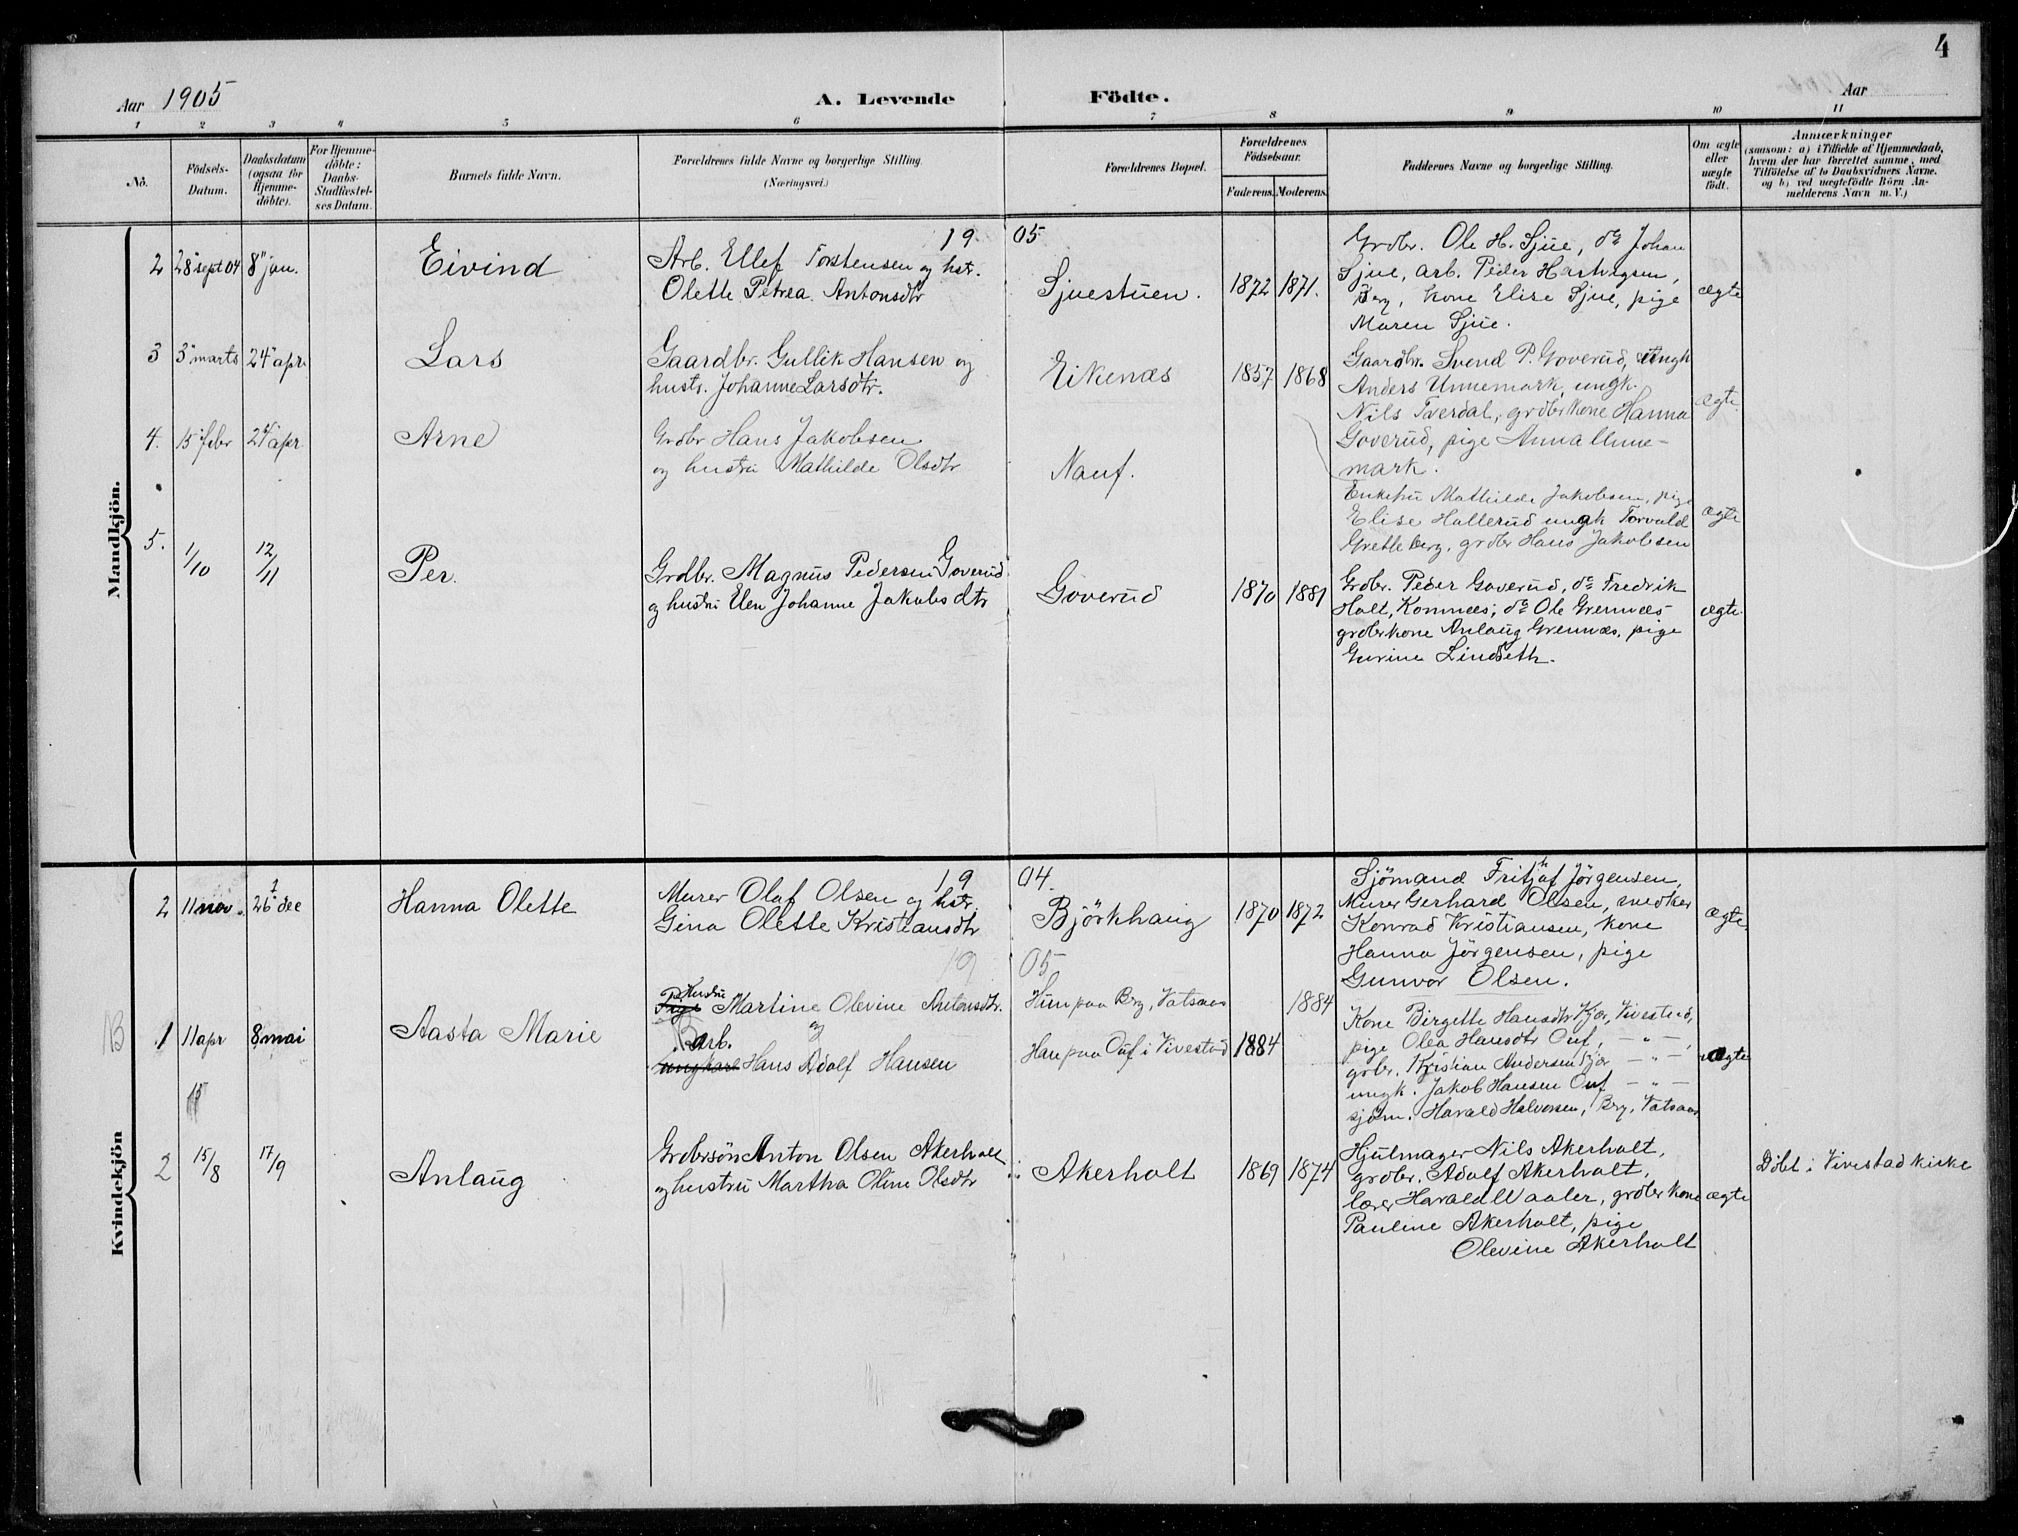 4
Aar 1905
A. Levende Födte.
Aar
1 2 3 4 5 6 7 8 9 10 11
No.
Födsels-Datum.
Daabsdatum (ogsaa for Hjemme-döbte).
For Hjemme-döbte: Daabs-Stadfæstel-ses Datum.
Barnets fulde Navn.
Forældrenes fulde Navne og borgerlige Stilling.
(Næringsvei.)
Forældrenes Bopæl.
Forældrenes Födselsaar.
Faderens. Moderens.
Faddernes Navne og borgerlige Stilling.
Om ægte eller uægte födt.
Anmærkninger
(saasom: a) i Tilfælde af Hjemmedaab,
hvem der har forrettet samme, med
Tilföielse af to Daabsvidners Navne.
og b) ved uægtefödte Börn An-
melderens Navn m. V.)
Mandkjön.
1905
2 28 sept 04 8 jan. Eivind
Arb. Ellef Torstensen og hstr.
Olette Petrea Antonsdtr
Sjuestuen. 1872 1871.
Grdbr. Ole H. Sjue, do Johan
Sjue, arb. Peder Hartvigsen,
Berg, kone Elise Sjue, pige
Maren Sjue.
ægte
3 3 marts 24 apr. Lars
Gaardbr. Gullik Hansen og
hustr. Johanne Larsdtr.
Eikenæs 1857 1868
Gaardbr. Svend P. Goverud, ungk
Anders Unnemark, ungk.
Nils Tverdal, grdbr kone Hanna
Goverud, pige Anna Unne-
mark.
ægte.
4. 15 febr 24 apr Arne
Grdbr Hans Jakobsen
og hustru Mathilde Olsdtr
Nauf.
Enkefru Mathilde Jakobsen, pige
Elise Hallerud ungk Torvald
Gretteberg, grdbr Hans Jakobsen
ægte
5. 1/10 12/11 Per.
Grdbr. Magnus Pedersen Goverud
og hustru Elen Johanne Jakobsdtr
Goverud 1870 1881
Grdbr. Peder Goverud, do Fredrik
Holt, Komnæs, do Ole Grennæs
grdbrkone Anlaug Grennæs, pige
Gurine Lindseth.
ægte.
Kvindekjön
1904.
2 11 nov. 26 dec Hanna Olette
Murer Olaf Olsen og hstr.
Gina Olette Kristiansdtr
Björkhaug 1870 1872
Sjömand Fritjof Jörgensen,
Murer Gerhard Olsen, snedker
Konrad Kristiansen, kone
Hanna Jörgensen, pige
Gunvor Olsen.
ægte.
1905
1 11 apr 8 mai Aasta Marie
Hustru
Pige Martine Olevine Antonsdtr.
og
arb.
ungkarl Hans Adolf Hansen
Hun paa Brg, Vatsaas 1884
Han paa Ouf i Vivestad 1884
Kone Birgette Hansdtr Kjær, Vivestad,
pige Olea Hansdtr Ouf, — " —,
gbr. Kristian Andersen Kjær — " —
ungk. Jakob Hansen Ouf — " —
sjöm. Harald Halvorsen, Brg, Vatsaas
ægte
2 15/8 17/9 Anlaug
Grdbrsön Anton Olsen Akerholt
og hustru Martha Oline Olsdtr
Akerholt 1869 1874
Hjulmager Nils Akerholt,
grdbr. Adolf Akerholt,
lærer Harald Waaler, grdbr kone
Pauline Akerholt, pige
Olevine Akerholt
ægte
Döbt i Vivestad kirke